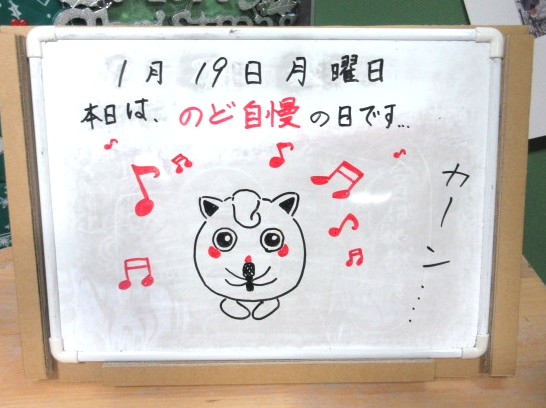 1月 19日 月 曜日
本日は、のど自慢の日です...
カーン......